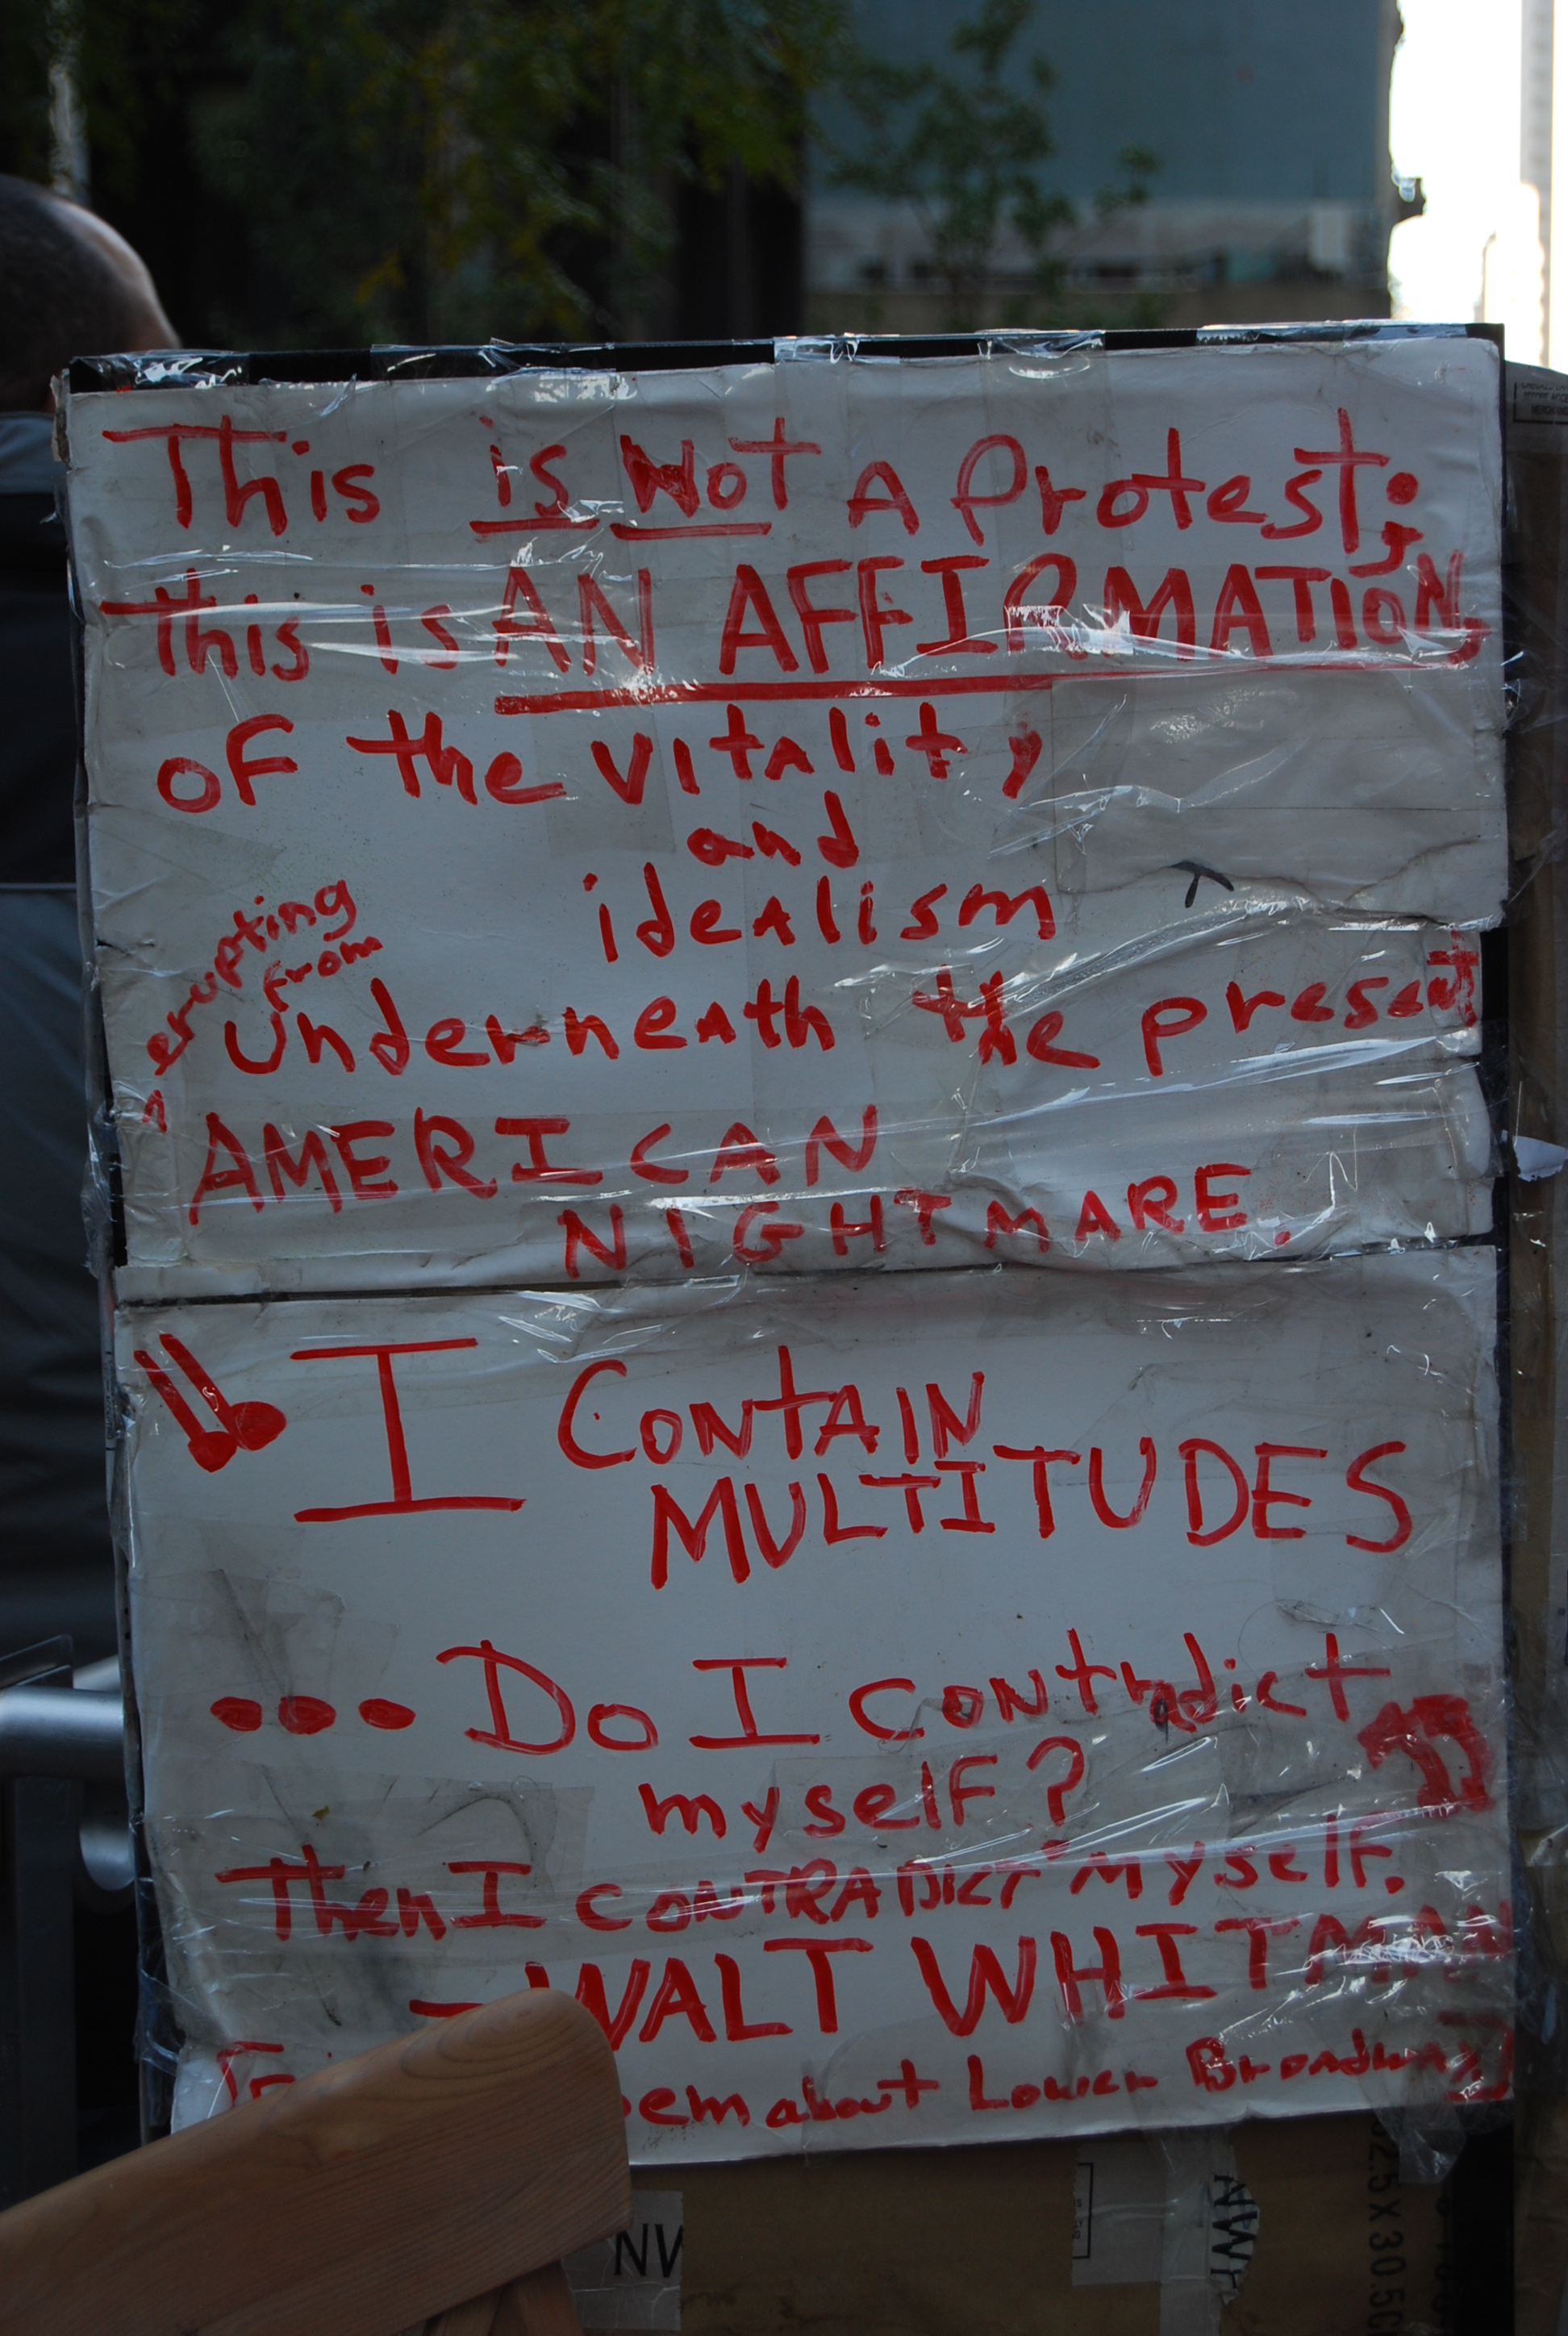 This is Not A Protest;
this is AN AFFIRMATION
OF the vitality
and
idealism
erupting
from
Underneath the present
AMERICAN
NIGHTMARE.
"I CONTAIN
MULTITUDES
... Do I contradict
myself?
Then I CONTRADICT myself."
—WALT WHITMAN
oem about Lower Broadway]
NV